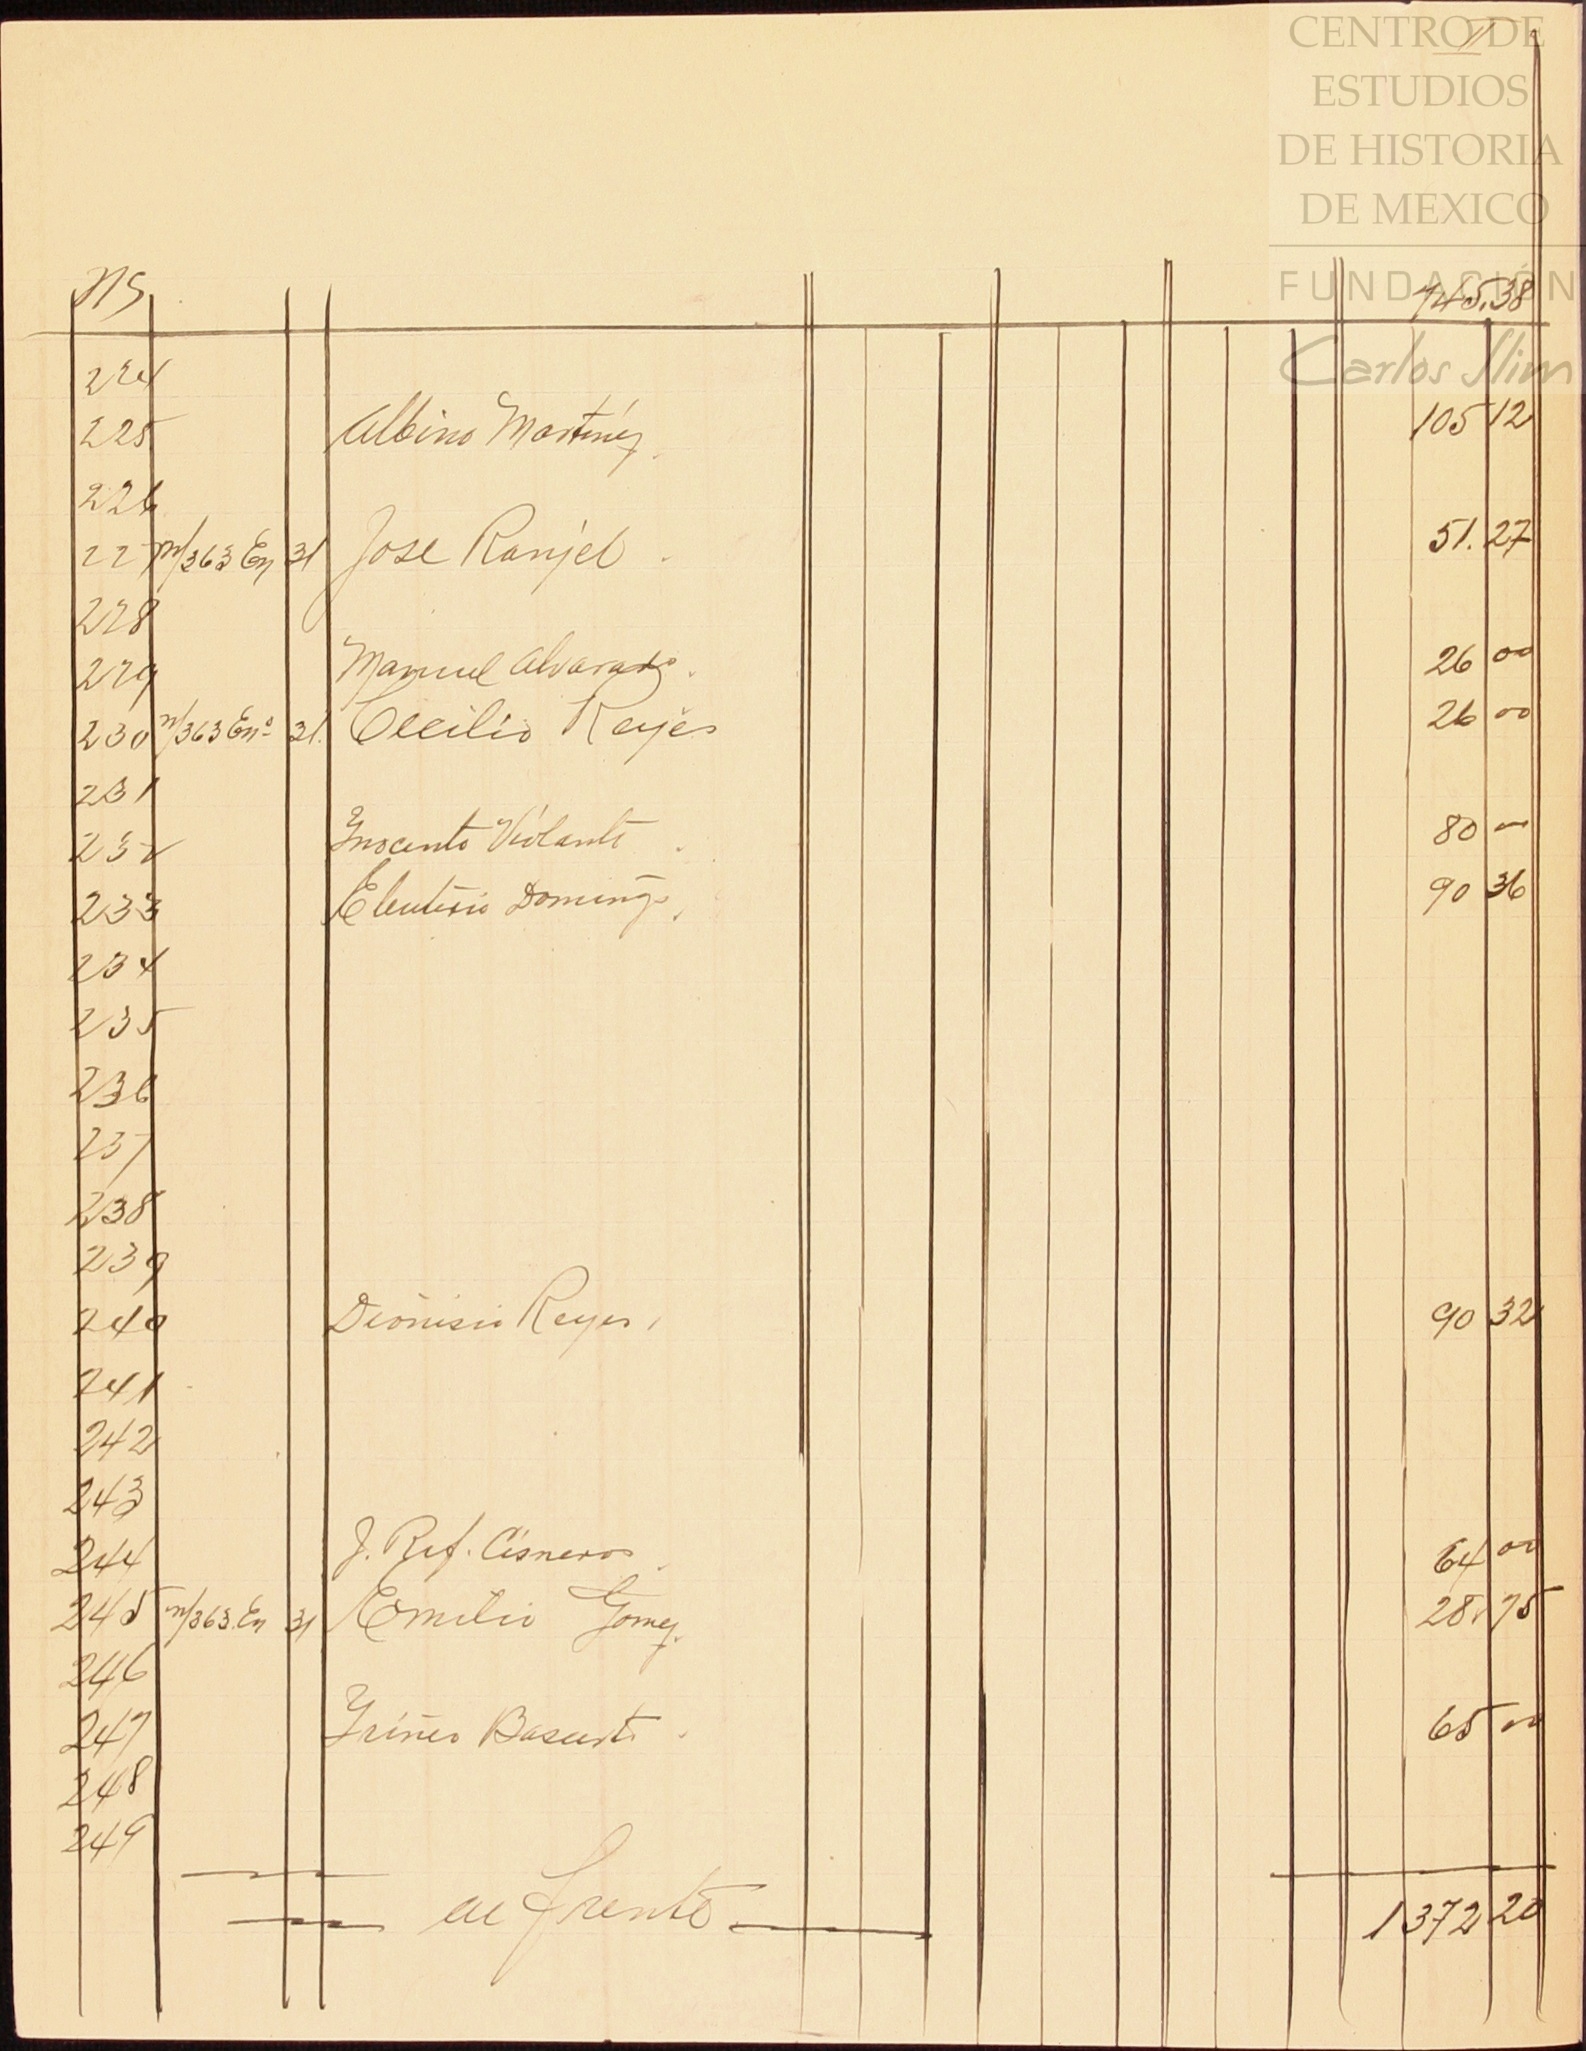 CENTRO DE
ESTUDIOS
DE HISTORIA
DE MEXICO
FUNDACIÓN
Carlos Slim
11
NS 745.38
224
225 Albino Martínez. 105 12
226
227 n/363 En 31 Jose Ranjel. 51.27
228
229 Manuel Alvarado. 26 00
230 n/363 Enº 31. Cecilio Reyes 26 00
231
232 Ynocente Violante. 80 00
233 Eleuterio Doming. 90 36
234
235
236
237
238
239
240 Dionisio Reyes, 90 32
241
242
243
244 J. Ref. Cisneros. 64 00
245 n/363. En 31 Emilio Gomez. 28.75
246
247 Yrineo Basurto. 65 00
248
249
al frente 1372 20